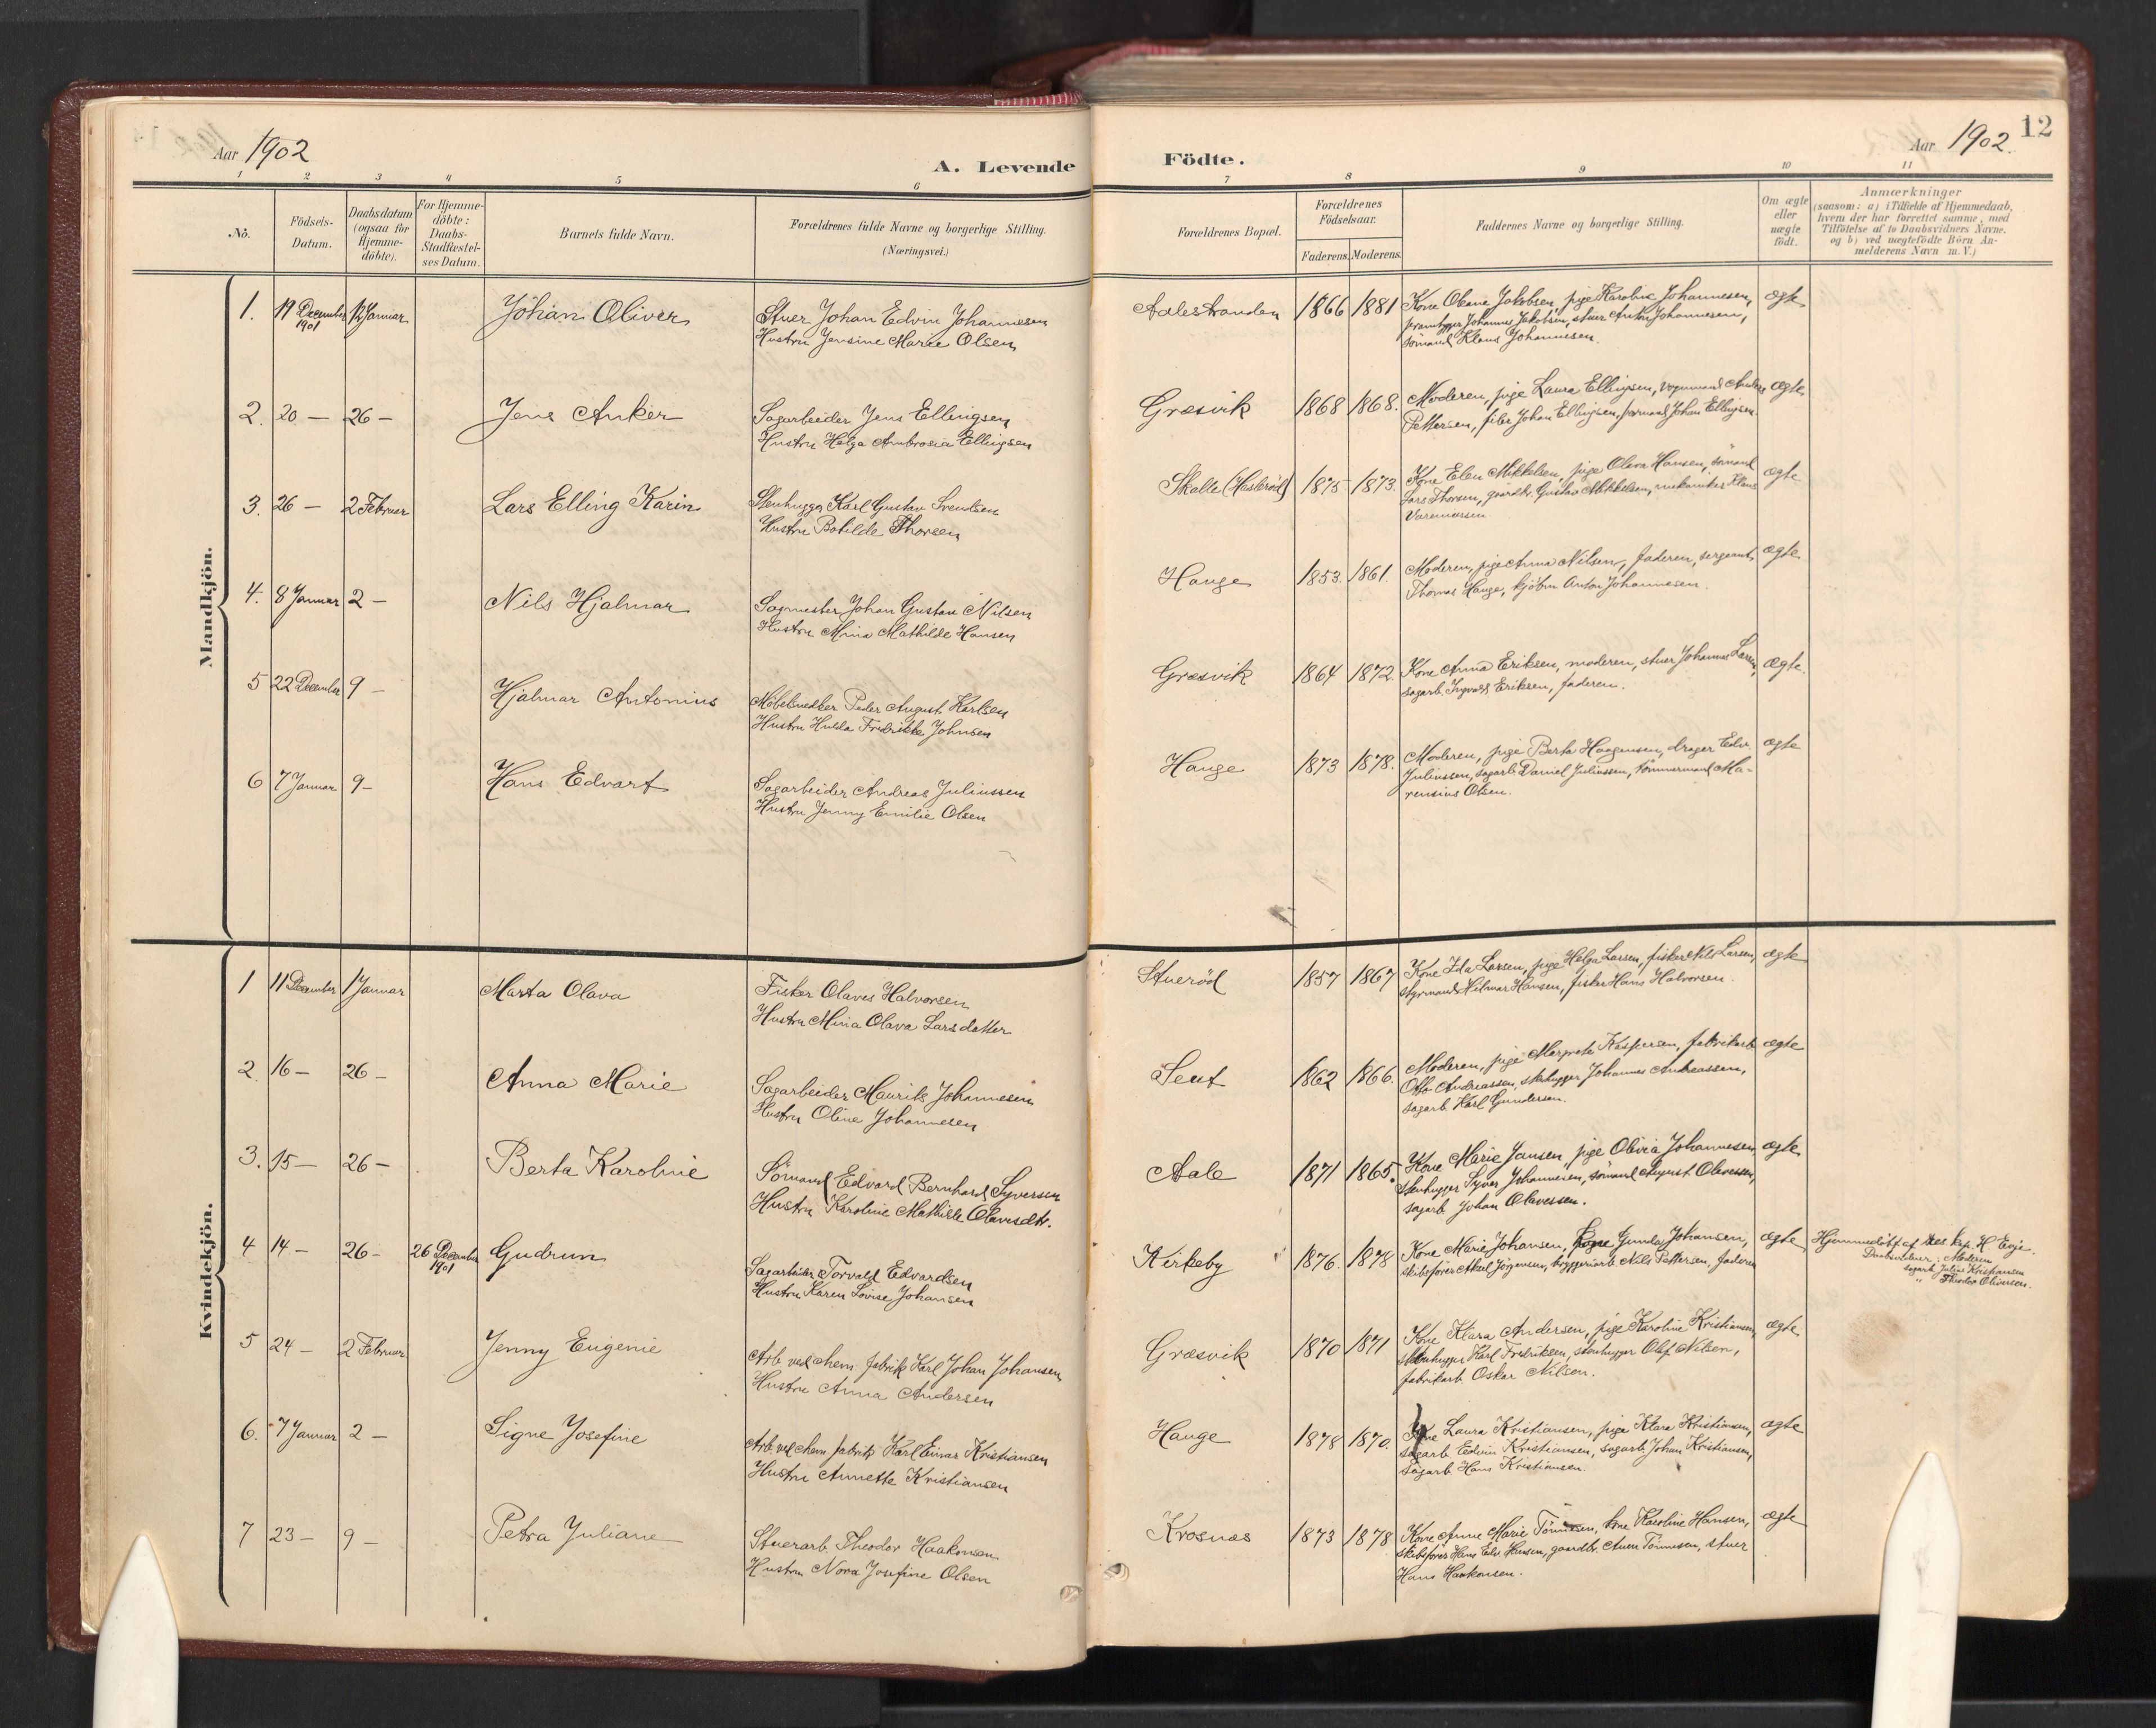 Aar 1902
A. Levende Födte.
Aar 1902.
12
1 2 3 4 5 6 7 8 9 10 11
No.
Födsels-
Datum.
Daabsdatum
(ogsaa for
Hjemme-
döbte).
For Hjemme-
döbte:
Daabs-
Stadfæstel-
ses Datum.
Barnets fulde Navn.
Forældrenes fulde Navne og borgerlige Stilling.
(Næringsvei.)
Forældrenes Bopæl.
Forældrenes
Födselsaar.
Faderens. Moderens.
Faddernes Navne og borgerlige Stilling.
Om ægte
eller
uægte
födt.
Anmærkninger
(saasom: a) i Tilfælde af Hjemmedaab,
hvem der har forrettet samme, med
Tilföielse af to Daabsvidners Navne.
og b) ved uægtefödte Börn An-
melderens Navn m. V.)
Mandkjön.
1. 19 December 1901 12 Januar Johan Oliver
Stuer Johan Edvin Johannesen
Hustru Jensine Marie Olsen
Aalestranden 1866 1881
Kone Oleane Jakobsen, pige Karoline Johannesen,
Johannes Jakobsen, stuer Anton Johannesen,
sömand Klaus Johannesen.
ægte
2. 20 — 26 — Jens Anker
Sagarbeider Jens Ellingsen
Hustru Helga Ambrosia Ellingsen
Græsvik 1868 1868.
Moderen, pige Laura Ellingsen, vognmand Anders
Pettersen, filer Johan Ellingsen, formand Johan Ellingsen.
ægte
3. 26 — 2 Februar Lars Elling Karin
Stenhugger Karl Gustav Svendsen
Hustru Botilde Thorsen
Skalle (Haslerød) 1875 1873.
Kone Elen Mikkelsen, pige Olava Hansen, sömand
Lars Thorsen, gaardbr. Gustav Mikkelsen, mekaniker Klaus
ægte
4. 8 Januar 2 — Nils Hjalmar
Sagmester Johan Gustav Nilsen
Hustru Mina Mathilde Hansen
Hauge 1853. 1861.
Moderen, pige Anna Nilsen, faderen, sergeant
Thomas Hauge, kjöbm Anton Johannesen.
ægte
5 22 December 9 — Hjalmar Antonius
Möbelsnedker Peder August Karlsen
Hustru Hulda Fredrikke Johnsen
Græsvik 1864 1872.
Kone Anna Eriksen, moderen, stuer Johannes Larsen,
sagarb. Ingvald Eriksen, faderen.
ægte.
6 7 Januar 9 — Hans Edvart
Sagarbeider Andreas Juliussen
Hustru Jenny Emilie Olsen
Hauge 1873 1878.
Moderen, pige Berta Haagensen, drager Edv.
Juliussen, sagarb. Daniel Juliussen, tömmermand Ma-
rensius Olsen.
ægte
Kvindekjön.
1 11 December 1 Januar Marta Olava
Fisker Olaves Halvorsen
Hustru Mina Olava Larsdatter
Stueröd 1857 1867
Kone Ida Larsen, pige Helga Larsen, fisker Nils Larsen,
styrmand Hilmar Hansen, fisker Hans Halvorsen.
ægte
2. 16 — 26 — Anna Marie
Sagarbeider Maurits Johannesen
Hustru Oline Johannesen
Seut 1862 1866.
Moderen, pige Margrete Kaspersen, fabrikarb
Otto Andreassen, stenhugger Johannes Andreassen,
sagarb. Karl Gundersen.
ægte
3. 15 — 26 — Berta Karoline
Sömand Edvard Bernhard Syversen
Hustru Karoline Mathilde Olavesdtr.
Aale 1871 1865.
Kone Marie Jansen, pige Olivia Johannesen,
stenhugger Syver Johannesen, sömand August Olavesen,
sagarb. Johan Olavessen.
ægte
4 14 — 26 — 26 December 1901 Gudrun
Sagarbeider Torvald Edvardsen
Hustru Karen Lovise Johansen
Kirkeby 1876. 1878
Kone Marie Johansen, Gunda Johansen,
skibsförer Aksel Jörgensen, bryggeriarb. Nils Pettersen, faderen
ægte
Hjemmedöbt af res. kap. H. Evje.
Daabsvidner: Moderen
sagarb. Julius Kristiansen
" Theodor Oliversen.
5 24 — 2 Februar Jenny Eugenie
Arb. ved chem. fabrik Karl Johan Johansen
Hustru Anna Andersen
Græsvik 1870 1871
Kone Klara Andersen, pige Karoline Kristiansen,
stenhugger Karl Fredriksen, stenhugger Olaf Nilsen,
fabrikarb. Oskar Nilsen.
ægte
6. 7 Januar 2 — Signe Josefine
Arb. ved chem. fabrik Karl Einar Kristiansen
Hustru Annette Kristiansen
Hauge 1878 1870.
Kone Laura Kristiansen, pige Klara Kristiansen,
sagarb. Edvin Kristiansen, sagarb. Johan Kristiansen,
sagarb. Hans Kristiansen.
ægte
7 23 — 9 — Petra Juliane
Stuerarb. Theodor Haakonsen
Hustru Nora Josefine Olsen
Krosnæs 1873 1878
Kone Anne Marie Tönnesen, kone Karoline Hansen,
skibsförer Hans Edv. Hansen, gaardbr. Anen Tönnesen, stuer
Hans Haakonsen.
ægte